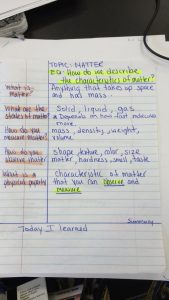 TOPIC: MATTER
EQ: How do we describe
the characteristics of matter?
What is Anything that takes up space
matter? and has mass.
What are the Solid, liquid, gas
states of matter? * Depends on how fast molecules
move.
How do you mass, density, weight,
measure matter? volume
How do you shape, texture, color, size
observe matter? matter, hardness, smell, taste
What is Characteristic of matter
a physical property that you can observe and
measure
Summary
Today I learned